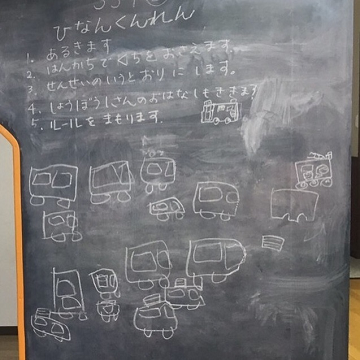 ひなんくんれん
1. あるきます
2. はんかちでくちをおさえます。
3. せんせいのいうとおりにします。
4. しょうぼうしさんのおはなしもききます
5. ルールをまもります。